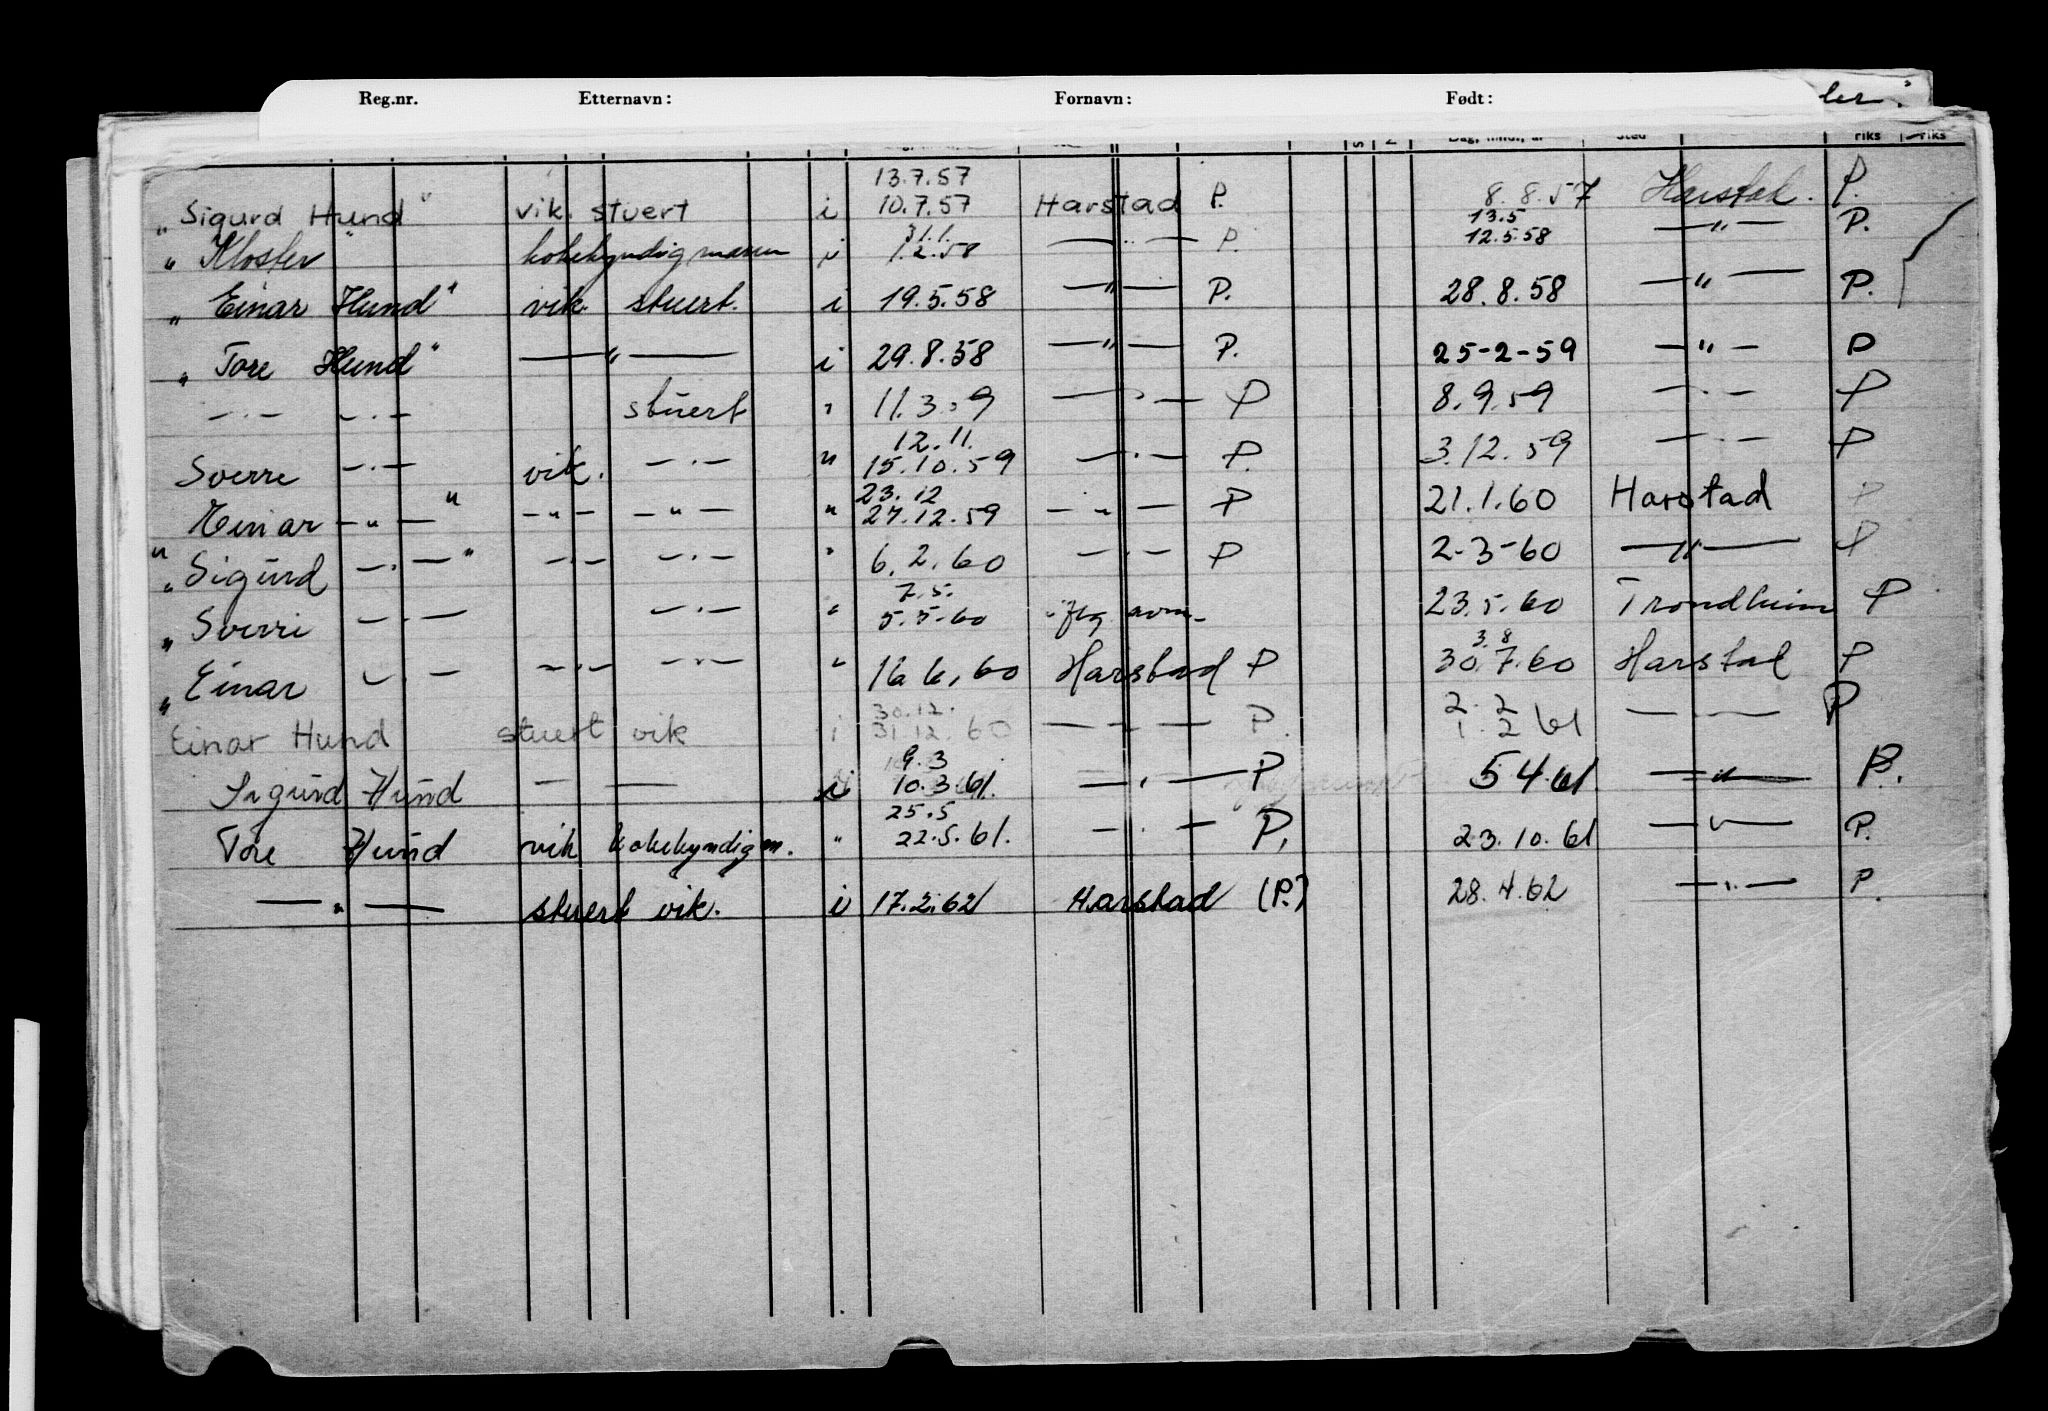 Reg.nr. Etternavn: Fornavn: Født:
ler:
Sted riks riks
„ Sigurd Hund" vik. stuert i 13.7.57 10.7.57 Harstad P. 8.8.57 Harstad. P.
„ Kloster " kokekyndig mann i 31.1. 1.2.58 —"— P. 13.5 12.5.58 —"— P.
„ Einar Hund" vik. stuert. i 19.5.58 —"— P. 28.8.58 —"— P.
„ Tore Hund" —"— i 29.8.58 —"— P. 25-2-59 —"— P
—"— —"— stuert " 11.3.59 —"— P 8.9.59 —"— P
Sverre —"— vik. —"— " 12.11. 15.10.59 —"— P. 3.12.59 —"— P
" Einar —"— " —"— —"— " 23.12 27.12.59 —"— P 21.1.60 Harstad P
„ Sigurd —"— " —"— —"— " 6.2.60 —"— P 2-3-60 —"— P
„ Sverri —"— —"— " 7.5. 5.5-60 iflg. avm. 23.5.60 Trondheim P
„ Einar —"— —"— —"— " 16.6.60 Harstad P 3.8 30.7.60 Harstad P
Einar Hund stuert vik i 30.12. 31.12.60 —"— P. 2.2 1.2 61 —"— P
Sigurd Hund — — i 9.3 10.3.61. —"— P 5 4.61 —"— P.
Tore Hund vik kokekyndig m. " 25.5 22.5.61. —"— P. 23.10.61 —"— P.
—"— stuert vik. i 17.2.62 Harstad (P.) 28.4.62 —"— P.